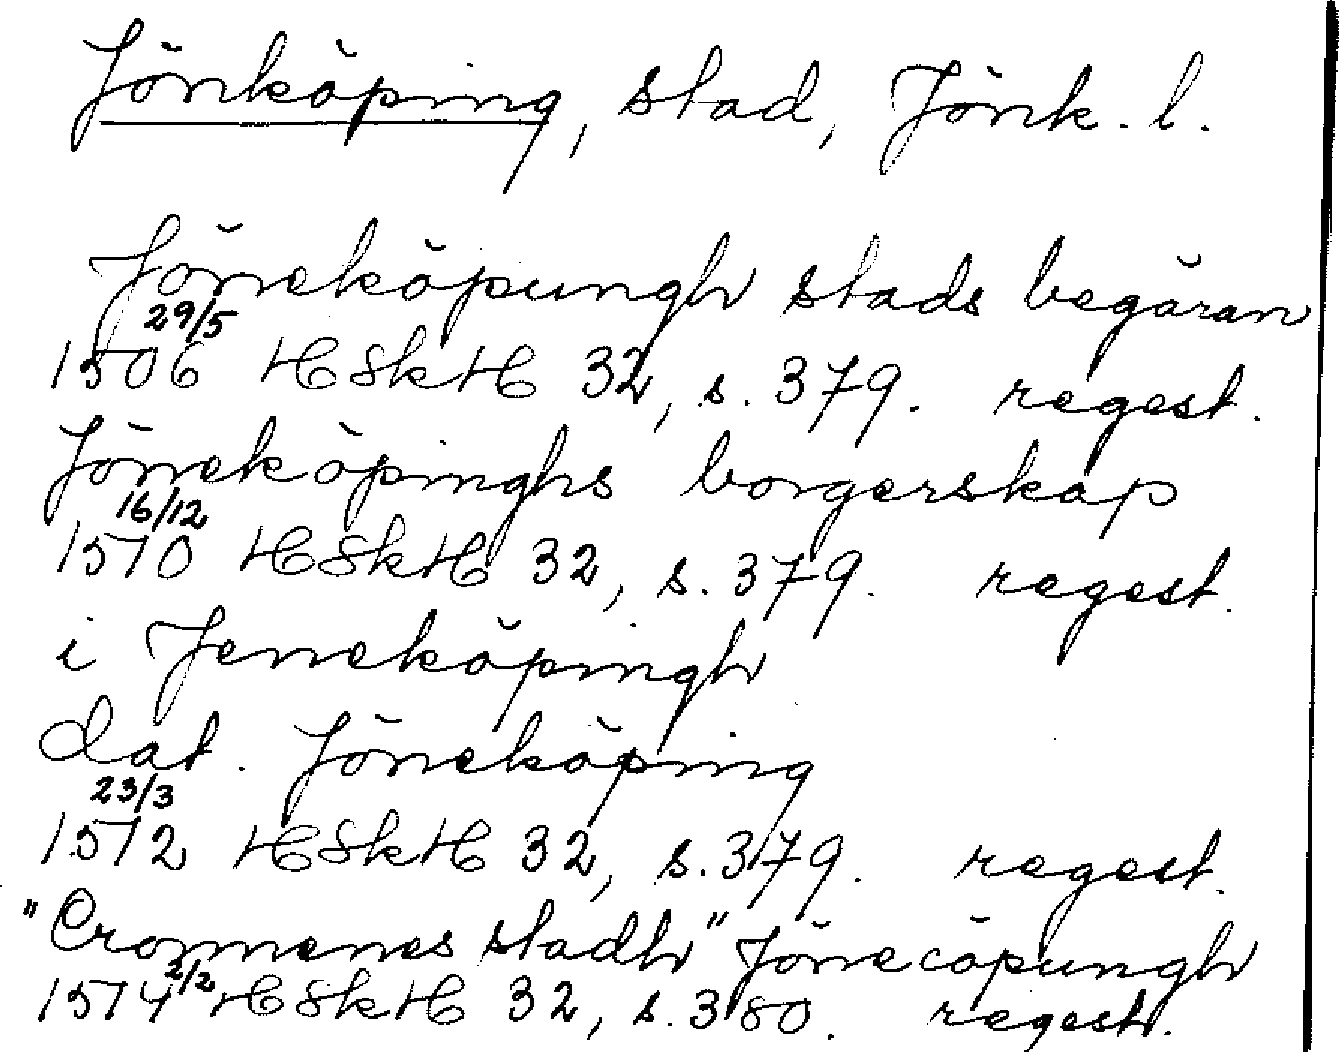 Jönköping, stad, Jönk. l.
Jöneköpungh stads begäran
29/5
1506 HSkH 32, s. 379. regest.
Jöneköpinghs borgerskap
16/12
1570 HSkH 32, s. 379. regest.
i Jeneköpingh
dat. Jöneköping
23/3
1572 HSkH 32, s. 379. regest.
"Cronnenes stadh" Jönecöpungh
1574 2/2 HSkH 32, s. 380. regest.